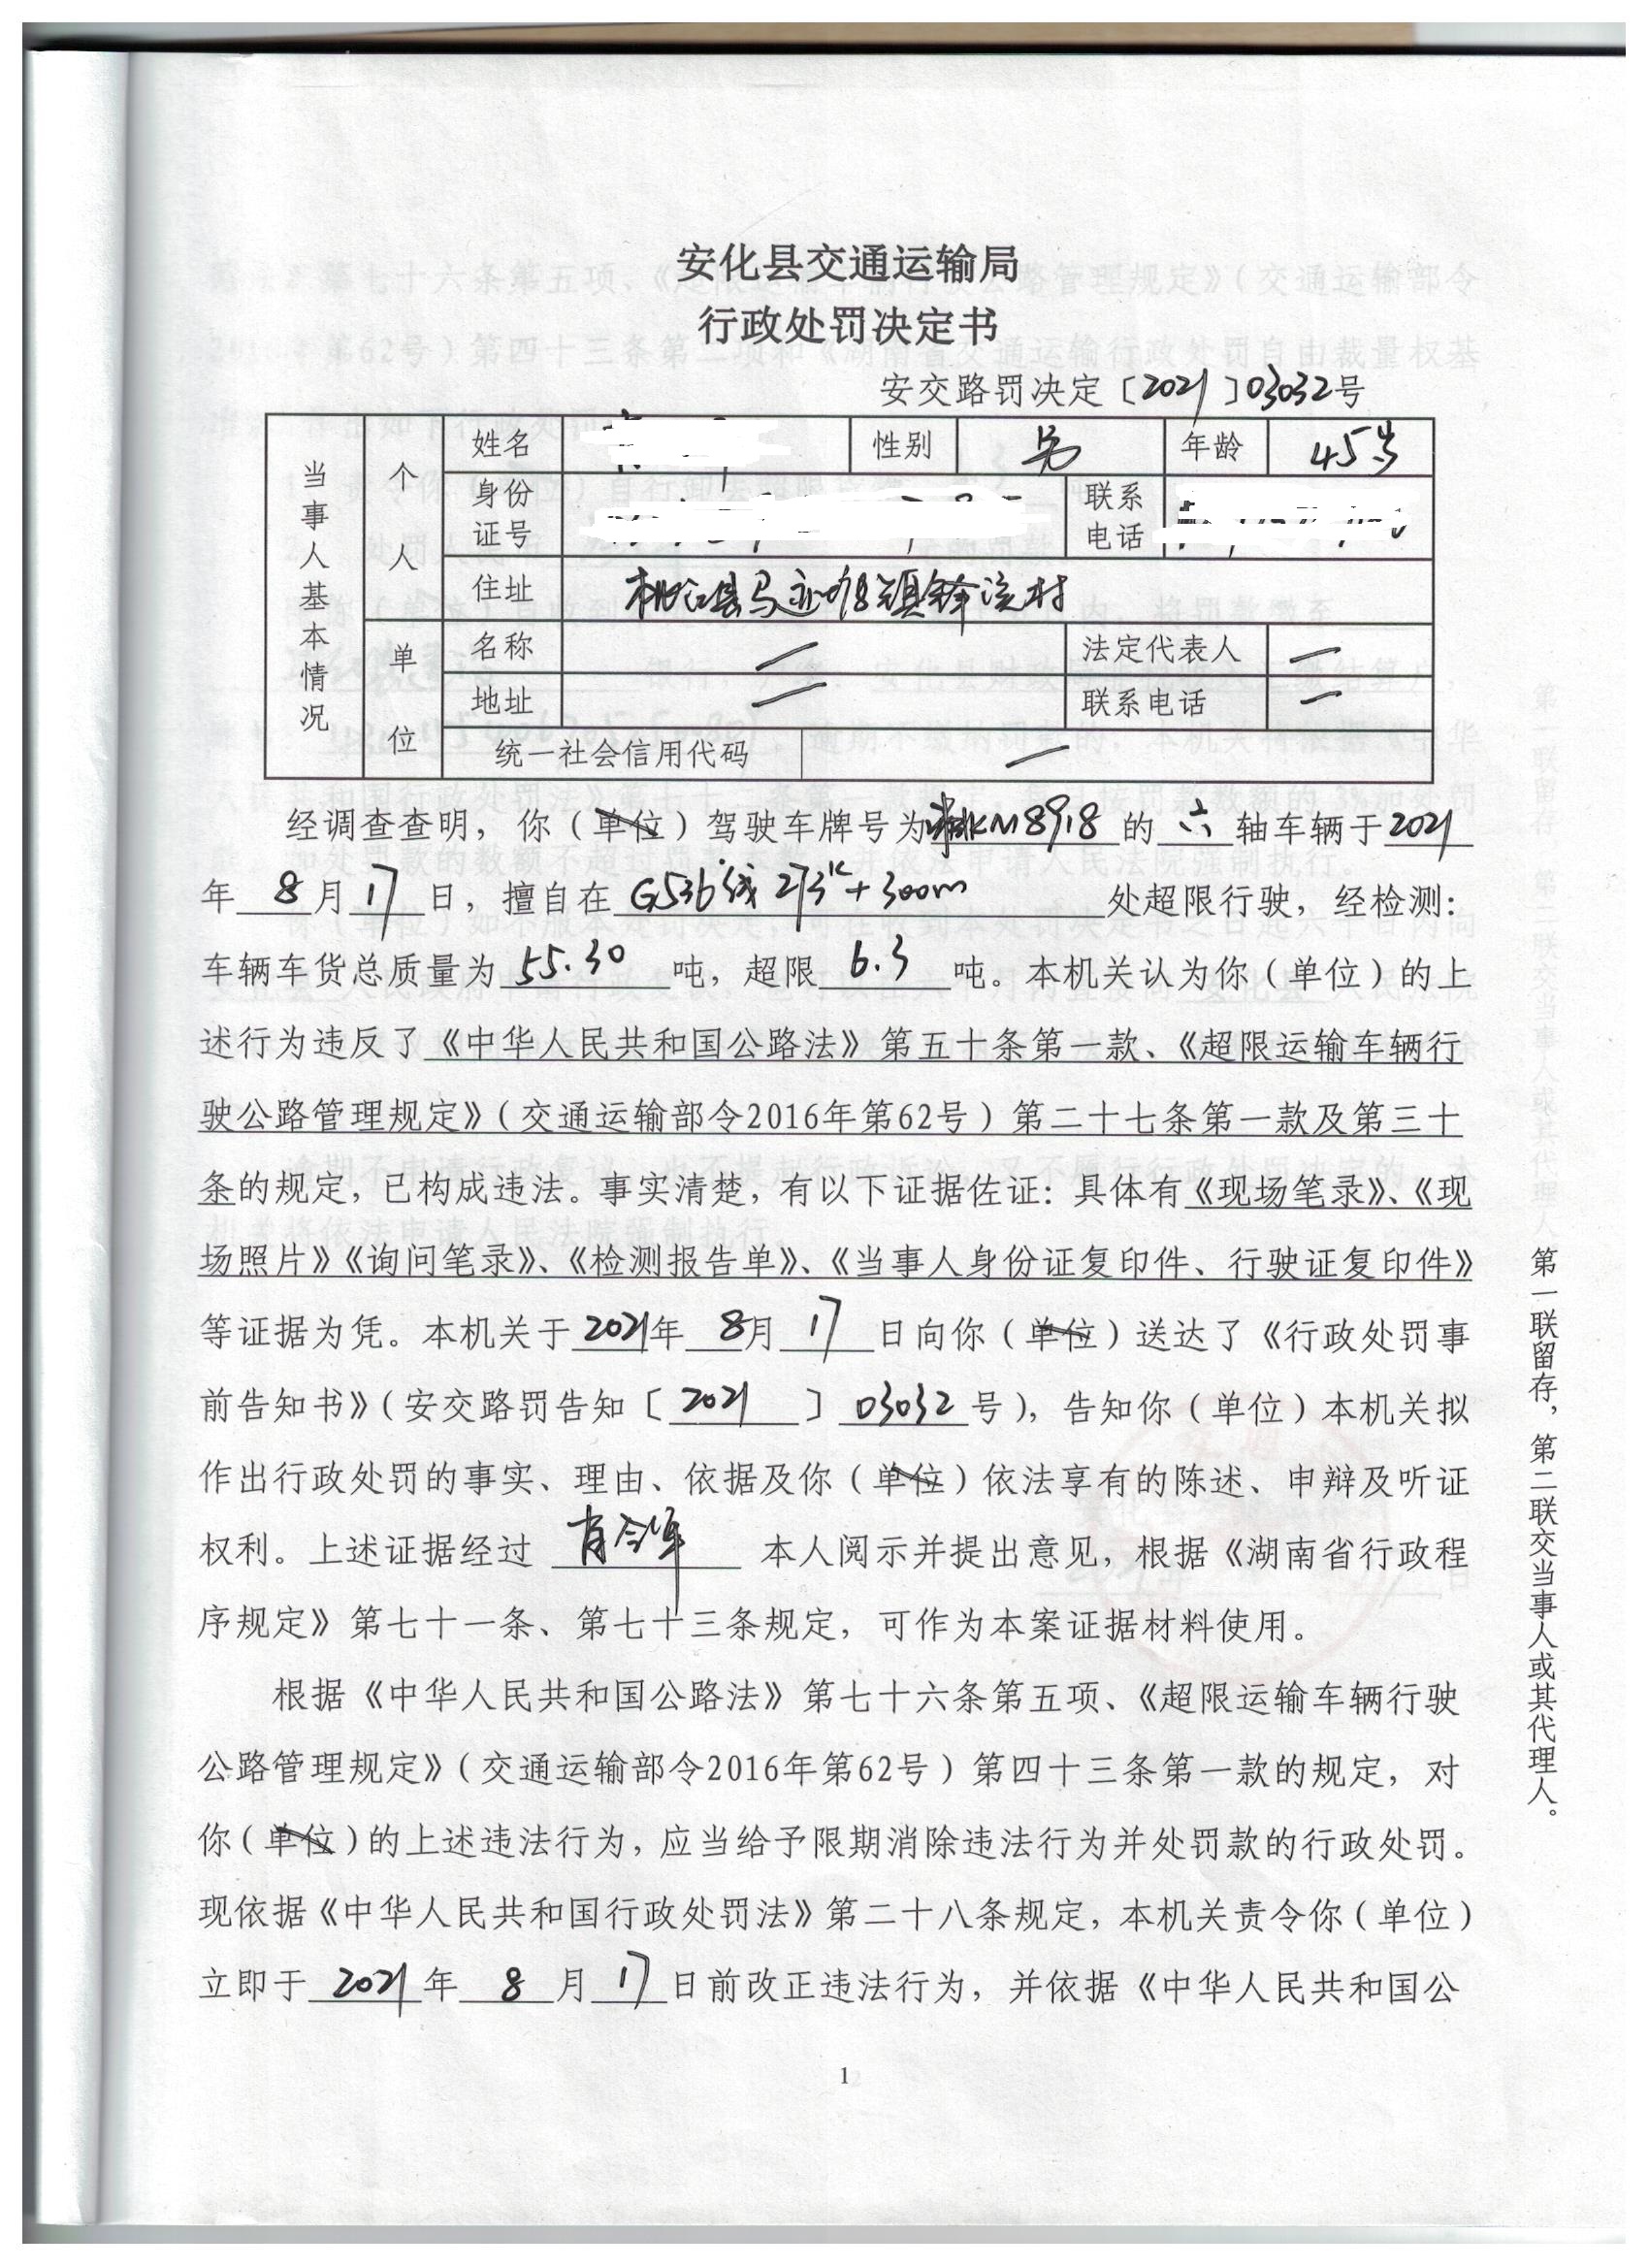 安化县交通运输局
行政处罚决定书
安交路罚决定〔2021〕03032号
当事人基本情况
个人
姓名 性别 男 年龄 45岁
身份证号 联系电话
住址 桃江县马迹塘镇锋流村
单位
名称 — 法定代表人 —
地址 — 联系电话 —
统一社会信用代码 —
经调查查明，你（单位）驾驶车牌号为湘KM8918的 六 轴车辆于2021
年 8 月 17 日，擅自在 G536线 273K+300m 处超限行驶，经检测：
车辆车货总质量为 55.30 吨，超限 6.3 吨。本机关认为你（单位）的上
述行为违反了《中华人民共和国公路法》第五十条第一款、《超限运输车辆行
驶公路管理规定》（交通运输部令2016年第62号）第二十七条第一款及第三十
条的规定，已构成违法。事实清楚，有以下证据佐证：具体有《现场笔录》、《现
场照片》《询问笔录》、《检测报告单》、《当事人身份证复印件、行驶证复印件》
等证据为凭。本机关于 2021年 8月 17 日向你（单位）送达了《行政处罚事
前告知书》（安交路罚告知〔 2021 〕 03032 号），告知你（单位）本机关拟
作出行政处罚的事实、理由、依据及你（单位）依法享有的陈述、申辩及听证
权利。上述证据经过 本人阅示并提出意见，根据《湖南省行政程
序规定》第七十一条、第七十三条规定，可作为本案证据材料使用。
根据《中华人民共和国公路法》第七十六条第五项、《超限运输车辆行驶
公路管理规定》（交通运输部令2016年第62号）第四十三条第一款的规定，对
你（单位）的上述违法行为，应当给予限期消除违法行为并处罚款的行政处罚。
现依据《中华人民共和国行政处罚法》第二十八条规定，本机关责令你（单位）
立即于 2021 年 8 月 17 日前改正违法行为，并依据《中华人民共和国公
1
第一联留存，第二联交当事人或其代理人。